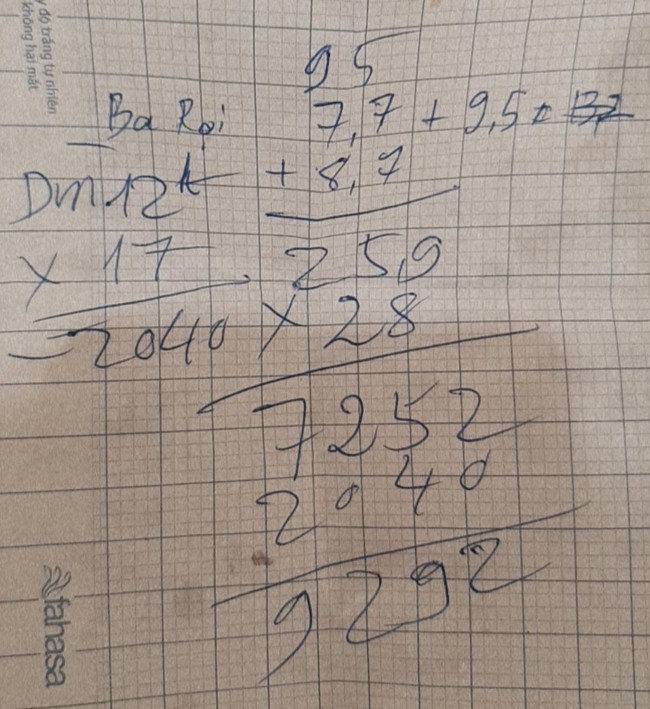 độ trắng tự nhiên
không hại mắt
95
Ba Rọi 7,7 + 9,5 =
+ 8,7
Dm 12k
x 17
2040
25,9
x 28
7252
2040
9292
fahasa